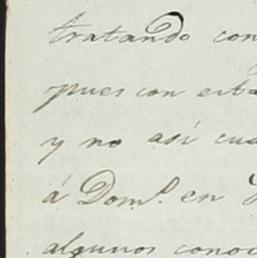 tratando con
pues con esta
y no así cua
á Dom.º en
algunos conoc